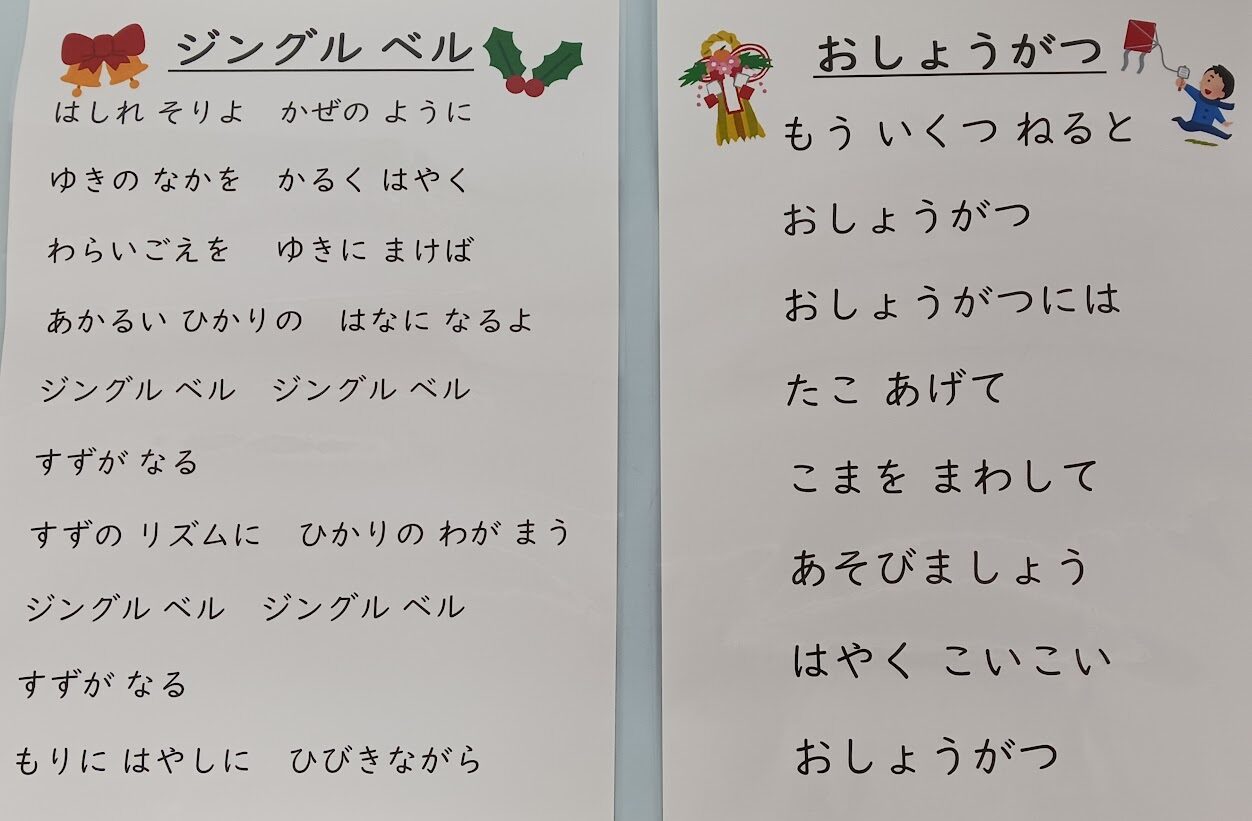 ジングル ベル
はしれ そりよ　かぜの ように
ゆきの なかを　かるく はやく
わらいごえを　ゆきに まけば
あかるい ひかりの　はなに なるよ
ジングル ベル　ジングル ベル
すずが なる
すずの リズムに　ひかりの わが まう
ジングル ベル　ジングル ベル
すずが なる
もりに はやしに　ひびきながら
おしょうがつ
もう いくつ ねると
おしょうがつ
おしょうがつには
たこ あげて
こまを まわして
あそびましょう
はやく こいこい
おしょうがつ